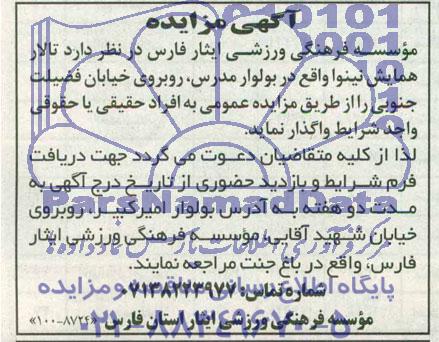 آگهی مزایده
مؤسسه فرهنگی ورزشی ایثار فارس در نظر دارد تالار
همایش نینوا واقع در بولوار مدرس، روبروی خیابان فضیلت
جنوبی را از طریق مزایده عمومی به افراد حقیقی یا حقوقی
واجد شرایط واگذار نماید.
لذا از کلیه متقاضیان دعوت می گردد جهت دریافت
فرم شرایط و بازدید حضوری از تاریخ درج آگهی به
مدت دو هفته به آدرس بولوار امیرکبیر، روبروی
خیابان شهید آقایی، مؤسسه فرهنگی ورزشی ایثار
فارس، واقع در باغ جنت مراجعه نمایند.
شماره تماس: ۰۷۱۳۸۲۲۳۹۷۷
مؤسسه فرهنگی ورزشی ایثار استان فارس «۸۷۲۶-۱۰۰»
ParsNamadData
پایگاه اطلاع رسانی مناقصه و مزایده
۰۲۱-۸۸۳۴۹۶۷۰-۵